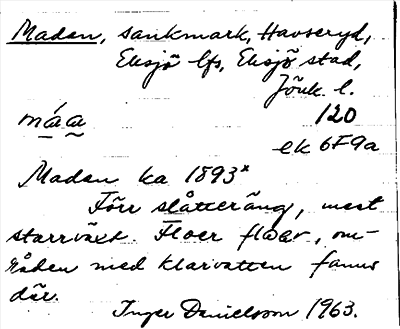 Madan, sankmark, Havseryd,
Eksjö lfs, Eksjö stad,
Jönk. l.
máa 120
ek 6F9a
Madan ka 1893*
Förr slåtteräng, mest
starrväxt. Floer floar, om-
råden med klarvatten fanns
där.
Inger Danielsson 1963.